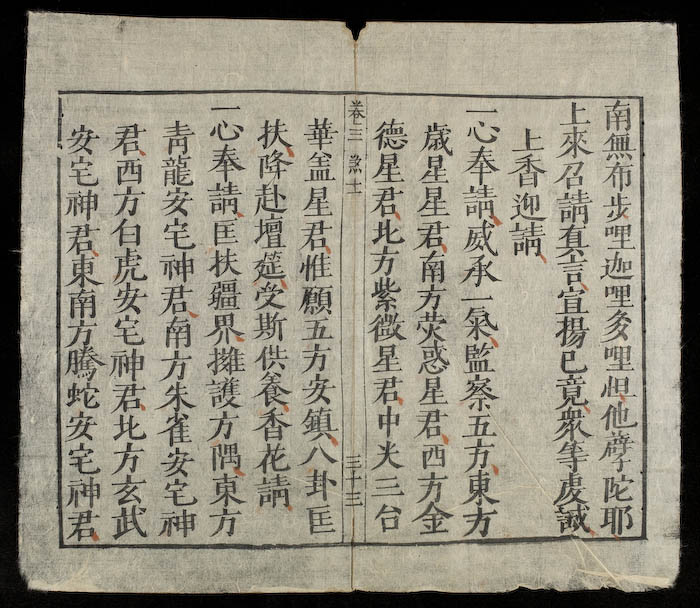 南無布步哩迦哩多哩怛他孽陀耶
上來召請真言宣揚已竟衆等虔誠
上香迎請
一心奉請威承一氣監察五方東方
歲星星君南方熒惑星君西方金
德星君北方紫微星君中央三台
卷三 三十三
華盖星君惟願五方安鎮八卦匡
扶降赴壇筵受斯供養香花請
一心奉請匡扶疆界擁護方隅東方
青龍安宅神君南方朱雀安宅神
君西方白虎安宅神君北方玄武
安宅神君東南方騰蛇安宅神君